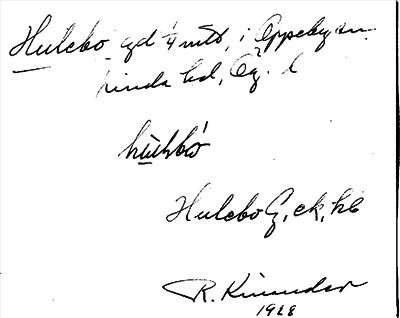 Hulebo gd 1/4 mtl, i Oppeby sn.
Kinda hd, Ög. l
hùhbó
Hulebo G, ek, hb
R. Kinander
1928